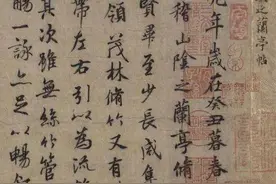 之蘭亭帖
九年歲在癸丑暮春
稽山陰之蘭亭脩
賢畢至少長咸集
領茂林脩竹又有
帶左右引以為流
其次雖無絲竹管
觴一詠亦足以暢敘